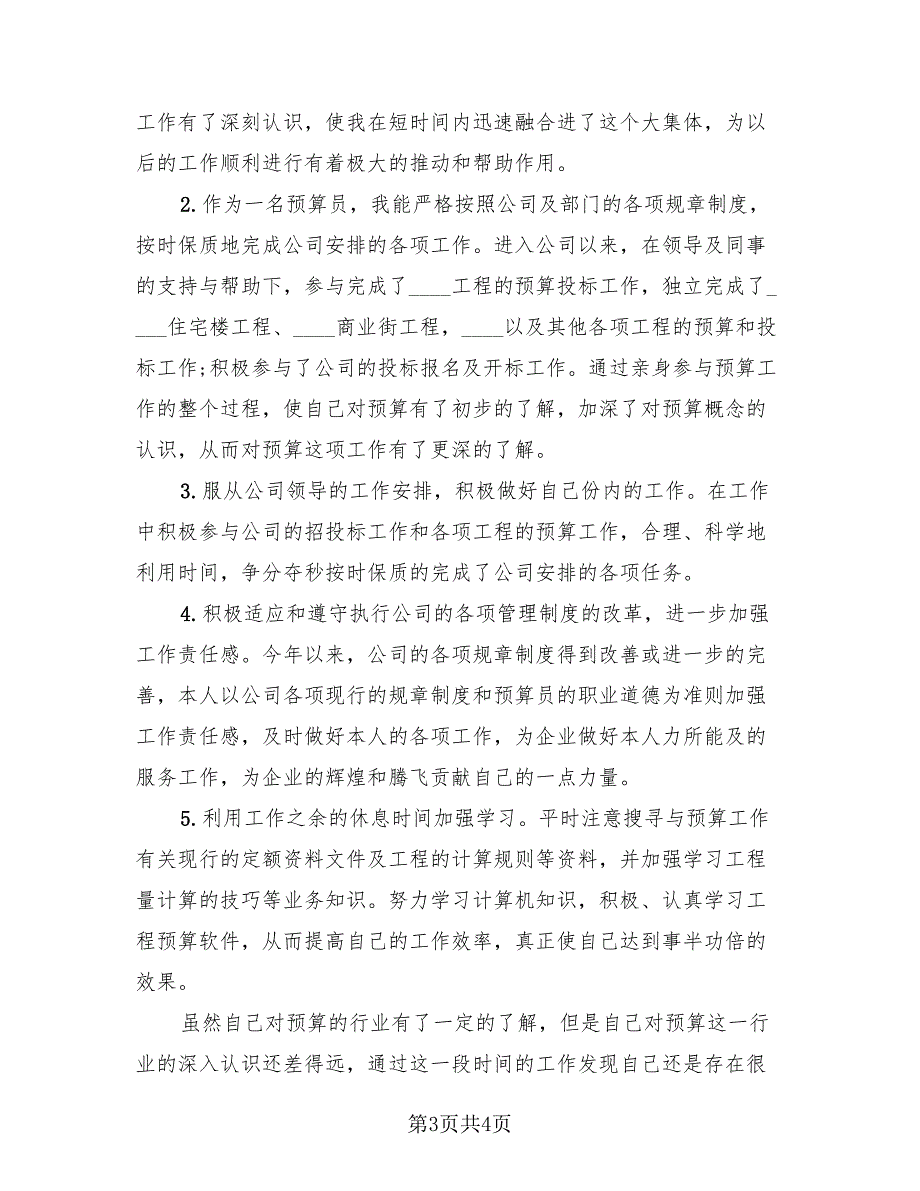 工作有了深刻认识，使我在短时间内迅速融合进了这个大集体，为以
后的工作顺利进行有着极大的推动和帮助作用。
2.作为一名预算员，我能严格按照公司及部门的各项规章制度，
按时保质地完成公司安排的各项工作。进入公司以来，在领导及同事
的支持与帮助下，参与完成了____工程的预算投标工作，独立完成了_
___住宅楼工程、____商业街工程，____以及其他各项工程的预算和投
标工作;积极参与了公司的投标报名及开标工作。通过亲身参与预算工
作的整个过程，使自己对预算有了初步的了解，加深了对预算概念的
认识，从而对预算这项工作有了更深的了解。
3.服从公司领导的工作安排，积极做好自己份内的工作。在工作
中积极参与公司的招投标工作和各项工程的预算工作，合理、科学地
利用时间，争分夺秒按时保质的完成了公司安排的各项任务。
4.积极适应和遵守执行公司的各项管理制度的改革，进一步加强
工作责任感。今年以来，公司的各项规章制度得到改善或进一步的完
善，本人以公司各项现行的规章制度和预算员的职业道德为准则加强
工作责任感，及时做好本人的各项工作，为企业做好本人力所能及的
服务工作，为企业的辉煌和腾飞贡献自己的一点力量。
5.利用工作之余的休息时间加强学习。平时注意搜寻与预算工作
有关现行的定额资料文件及工程的计算规则等资料，并加强学习工程
量计算的技巧等业务知识。努力学习计算机知识，积极、认真学习工
程预算软件，从而提高自己的工作效率，真正使自己达到事半功倍的
效果。
虽然自己对预算的行业有了一定的了解，但是自己对预算这一行
业的深入认识还差得远，通过这一段时间的工作发现自己还是存在很
第3页共4页